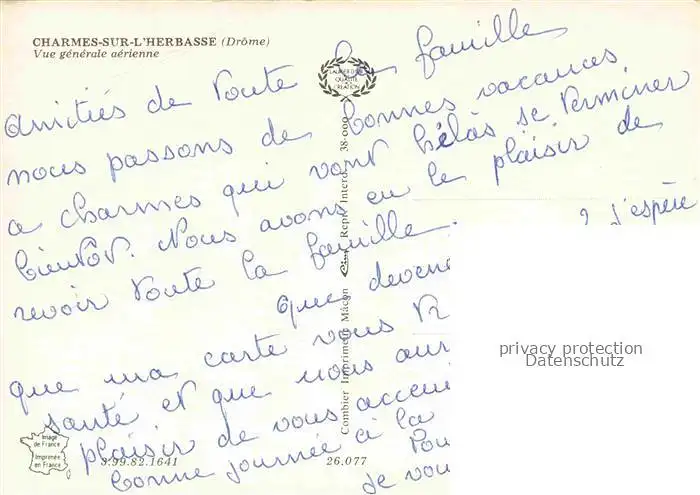 CHARMES-SUR-L'HERBASSE (Drôme)
Vue générale aérienne
LAURIER D'OR
QUALITÉ
CRÉATION
amitiés de toute la famille
nous passons de bonnes vacances
a charmes qui vont hélàs se terminer
bientôt. Nous avons eu le plaisir de
revoir toute la famille.
que devene
? j'espère
que ma carte vous tr
santé et que nous aur
plaisir de vous accuei
bonne journée à la
Pou
je vou
38-000
Repr. Interd.
Cim
Combier Imprimeur Mâcon
privacy protection
Datenschutz
Image
de France
Imprimée
en France
S.99.82.1641
26.077